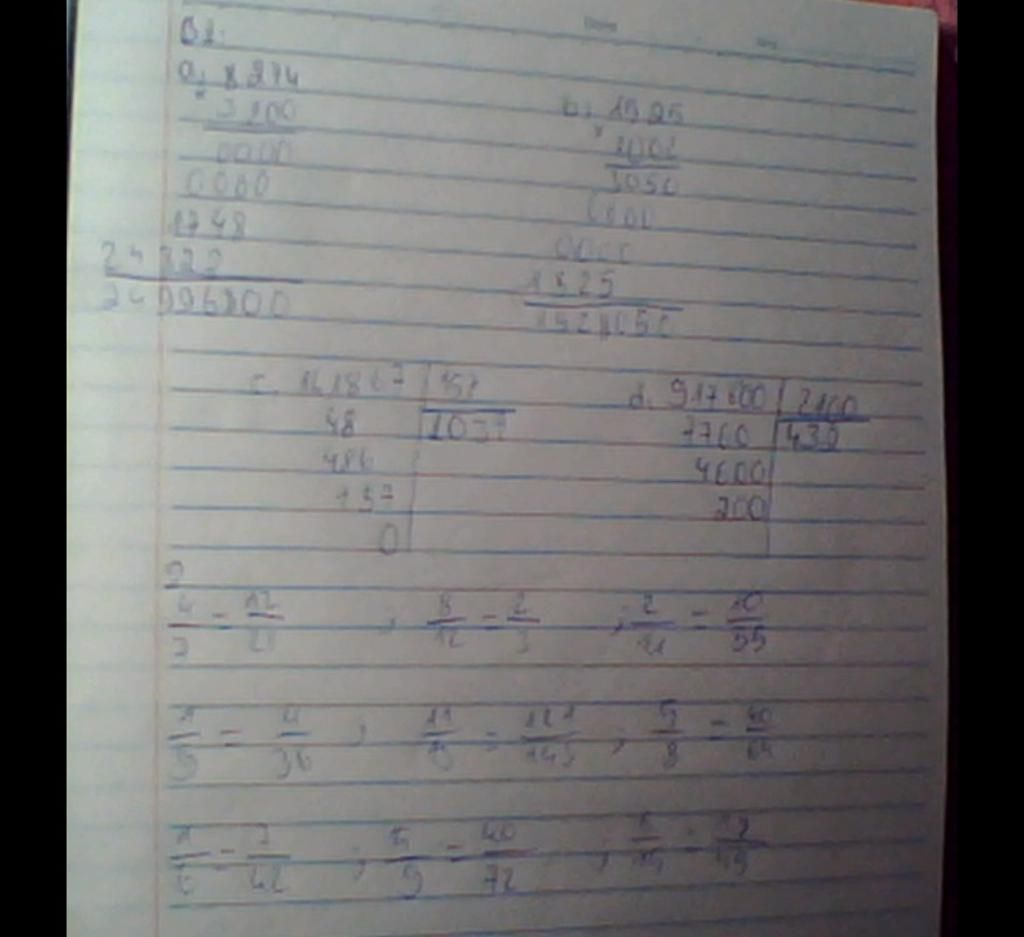 B1:
a, 8274
x
3200
0000
0000
1748
24822
b, 1525
x
1002
3050
0000
0000
1525
1528050
c, 161867 157
48 1031
486
157
0
d, 917600 2100
7760 432
4600
200
2
4/7 = 12/21 ; 8/12 = 2/3 ; 2/11 = 10/55
1/9 = 4/36 ; 11/13 = 121/143 ; 5/8 = 40/64
1/6 = 7/42 ; 5/9 = 40/72 ;